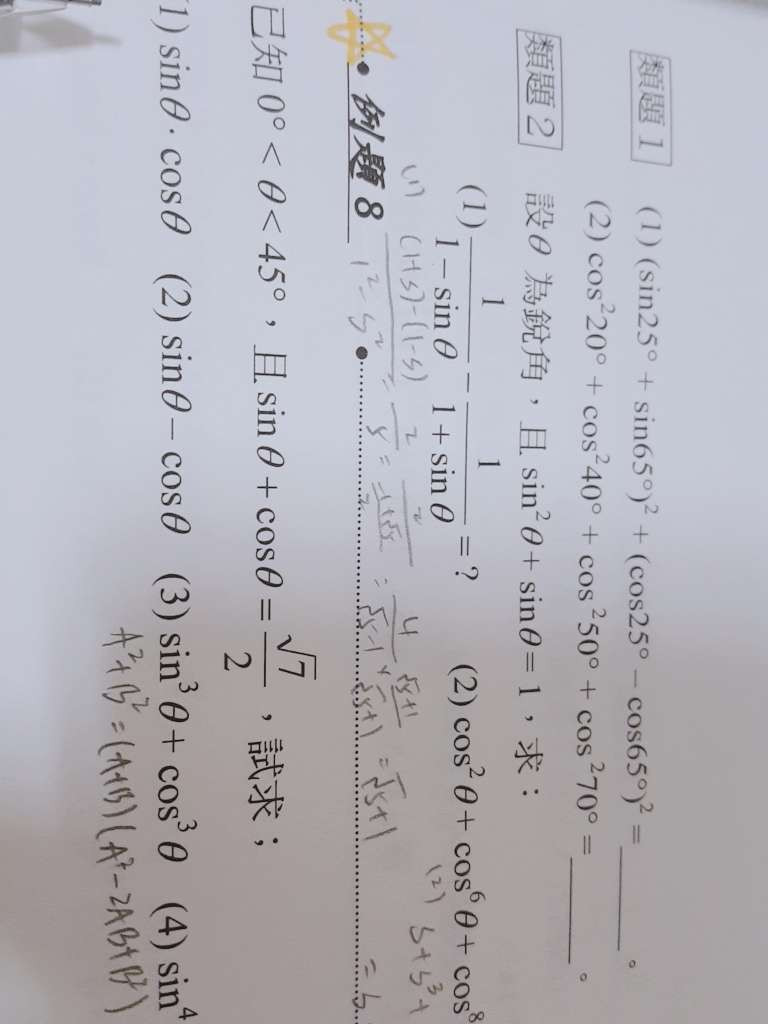 類題1 (1) (sin25° + sin65°)² + (cos25° − cos65°)² = ______。
(2) cos²20° + cos²40° + cos²50° + cos²70° = ______。
類題2 設θ為銳角，且 sin²θ + sinθ = 1，求：
(1) 1/(1−sinθ) − 1/(1+sinθ) = ? (2) cos²θ + cos⁶θ + cos⁸
(1) ((1+s)−(1−s))/(1²−s²) = 2 = 2 = 4/(√5−1) × (√5+1)/(√5+1) = √5+1
(2) s+s³+
例題8
已知 0° < θ < 45°，且 sinθ + cosθ = √7/2，試求；
(1) sinθ · cosθ (2) sinθ − cosθ (3) sin³θ + cos³θ (4) sin⁴
A²+B² = (A+B)(A²−2AB+B²)